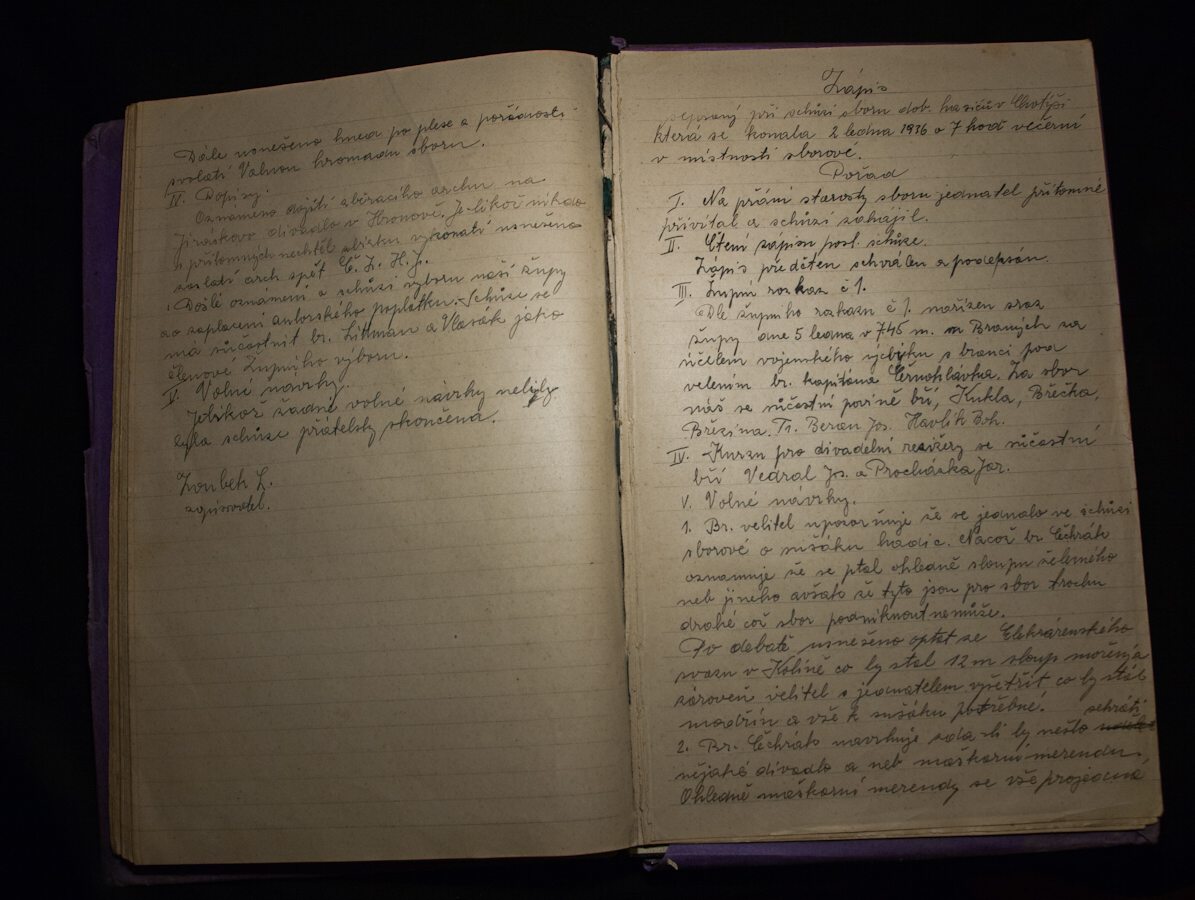 Dále usnešeno hned po plese a pořádnosti
svolati Valnou hromadu sboru.
IV. Dopisy.
Oznámeno dojití sběracího archu na
Jiráskovo divadlo v Hronově. Jelikož nikdo
z přítomných nechtěl sbírku vykonati usnešeno
zaslati arch zpět Č. Z. H. J.
Došlé oznámení o schůzi výboru naší župy
ao zaplacení autorského poplatku. Schůze se
má súčastnit br. Littman a Vlasák jako
členové Župního výboru.
V. Volné návrhy.
Jelikož žádné volné návrhy nebyly
byla schůze přátelsky skončena.
Zoubek L.
zapisovatel.
Zápis
sepsaný při schůzi sboru dob. hasičův Chotýši
která se konala 2 ledna 1936 o 7 hod večerní
v místnosti sborové.
Pořad
I. Na přání starosty sboru jednatel přítomné
přivítal a schůzi zahájil.
II. Čtení zápisu posl. schůze.
Zápis předčten schválen a podepsán.
III. Župní rozkaz č 1.
Dle župního rozkazu č 1. nařízen sraz
župy dne 5 ledna v 745 m. za
účelem vojenského výcviku s branci pod
velením br. kapitána Černohlávka. Za sbor
náš se súčastní povině bří, Kukla, Břečka,
Březina. Tr. Beran Jos. Havlík Boh.
IV. Kurzu pro divadelní režiséry se súčastní
bří Vedral Jos. a Procházka Jar.
V. Volné návrhy.
1. Br. velitel upozorňuje že se jednalo ve schůzi
sborové o sušáku hadic. Načež br Čchrák
oznamuje že se ptal ohledně sloupu železného
neb jiného avšak že tyto jsou pro sbor trochu
drahé což sbor podniknout nemůže.
Po debatě usnešeno optat se Elektrárenského
svazu v Kolíně co by stál 12 m sloup
zároveň velitel s jednatelem vyšetřit co by stál
modřín a vše k sušáku potřebné. sehráti
2. Br. Čchrák navrhuje zda-li by nešlo
nějaké divadlo a neb maškarní merendu.
Ohledně maškarní merendy se vše projedná